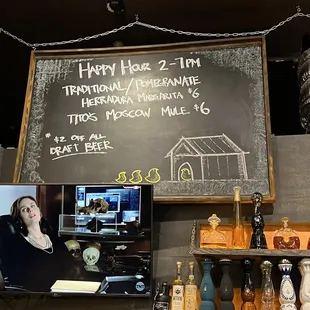 HAPPY HOUR 2-7PM
TRADITIONAL/POMEGRANATE
HERRADURA MARGARITA $6
TITO'S MOSCOW MULE $6
* $2 OFF ALL
DRAFT BEER